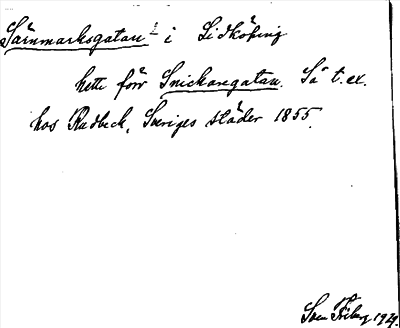 Särnmarksgatan i Lidköping
hette förr Snickaregatan. Så t.ex.
hos Rudbeck, Sveriges städer 1855.
Sven Friberg 1929.